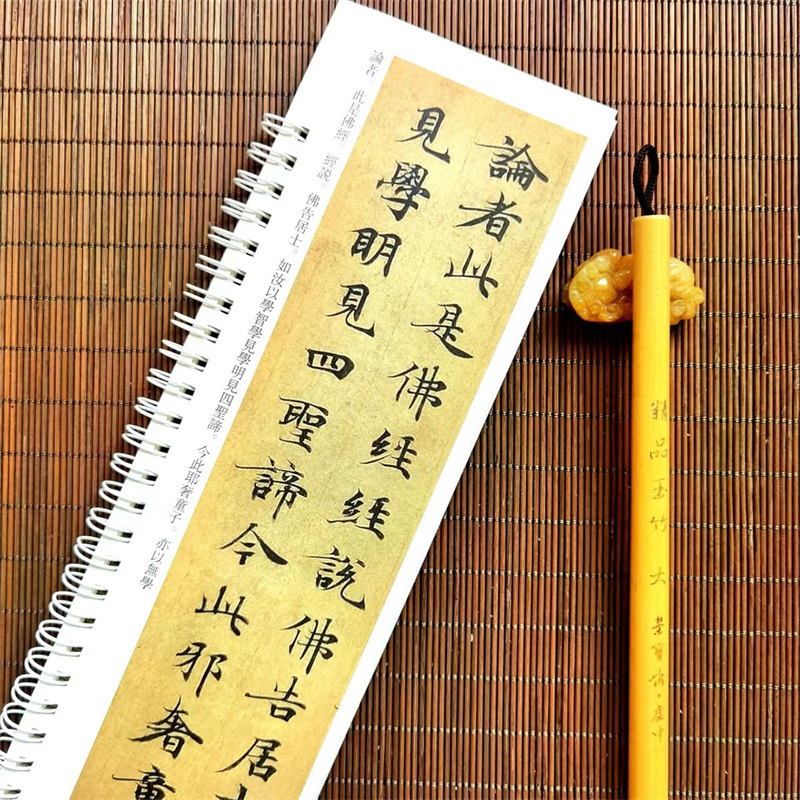 論者此是佛經經說佛告居
見學明見四聖諦今此邪奢童
論者 此是佛經。 經說。 佛告居士。 如汝以學智學見學明見四聖諦。 今此耶奢童子。 亦以無學
精品玉竹 大